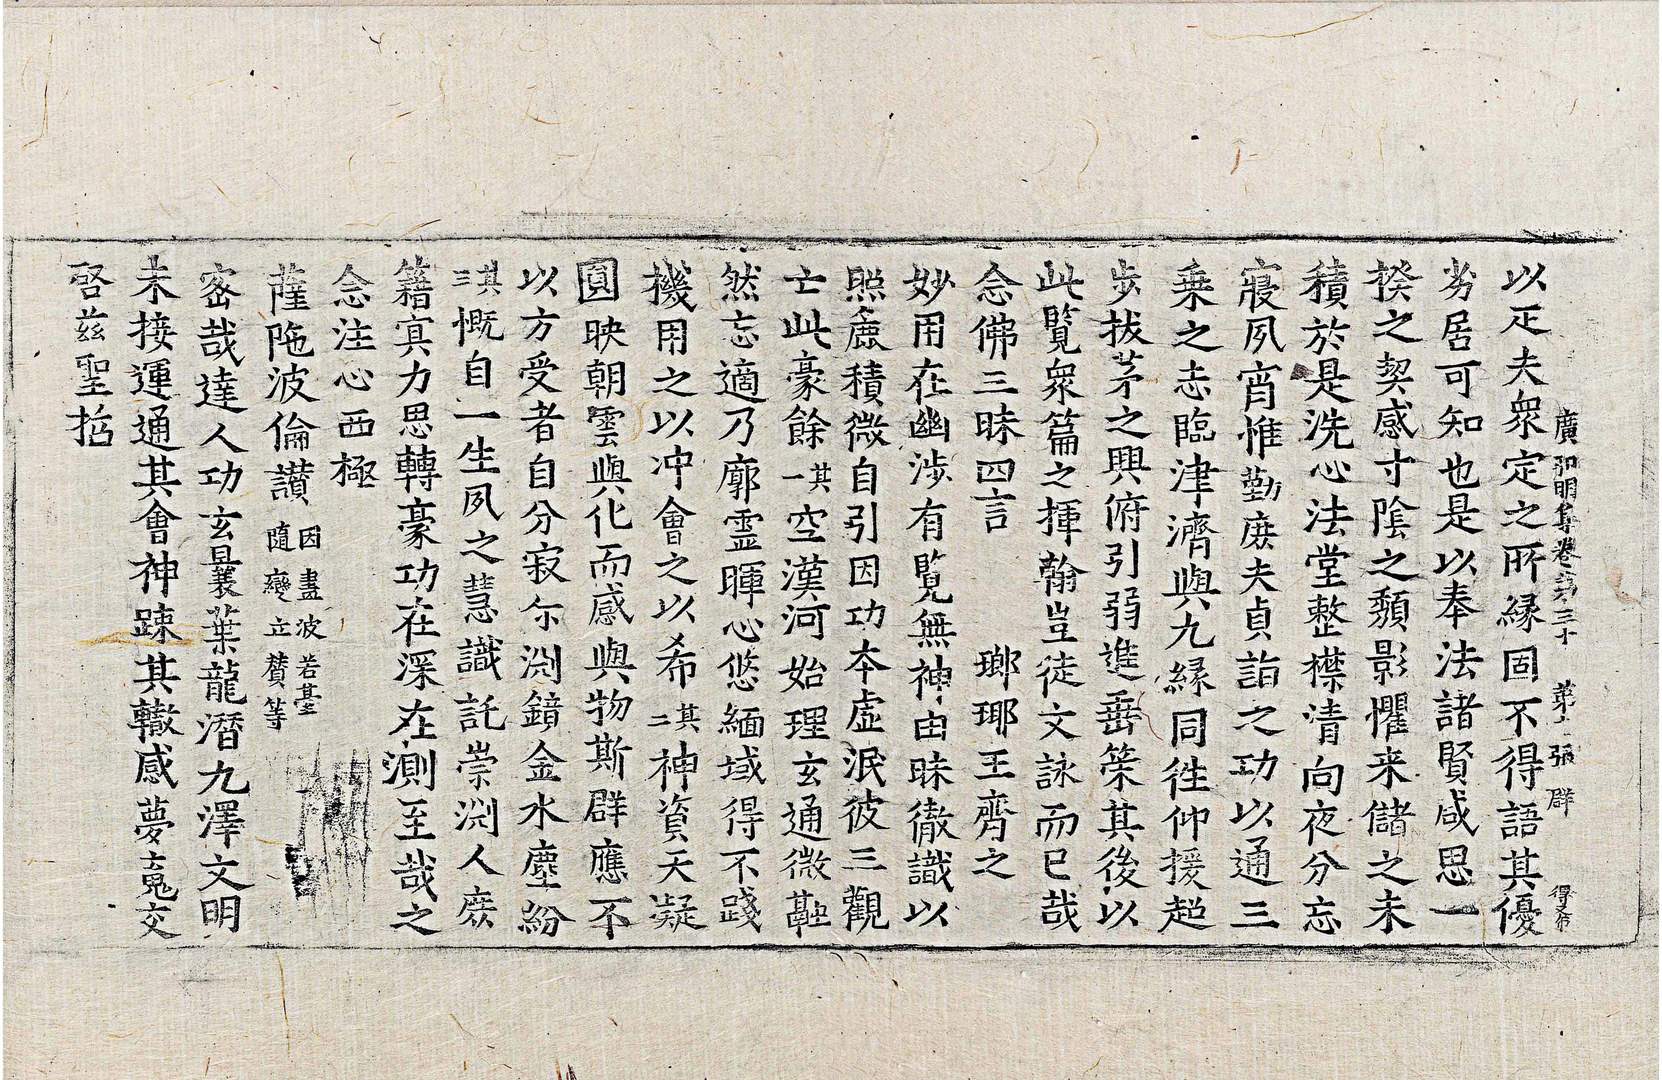 廣弘明集卷第三十 第十一張 群
以疋夫衆定之所縁固不得語其優
劣居可知也是以奉法諸賢咸思一
揆之契感寸陰之頹影懼来儲之未
積於是洗心法堂整襟清向夜分忘
寢夙宵惟勤庶夫貞詣之功以通三
乗之志臨津濟與九縁同徃仰援超
歩拔茅之興俯引弱進垂䇿其後以
此覧衆篇之揮翰豈徒文詠而已哉
念佛三昧四言 瑯瑘王齊之
妙用在幽渉有覧無神由昧徹識以
照麁積微自引因功夲虚泯彼三觀
亡此豪餘其一空漢河始理玄通微融
然忘適乃廓霊暉心悠緬域得不踐
機用之以冲會之以希其二神資天凝
圓映朝雲與化而感與物斯群應不
以方受者自分寂尒渕鏡金水塵紛
其三慨自一生夙之慧識託崇渕人庶
籍冥力思轉豪功在深在測至哉之
念注心西極
薩陁波倫讃因畫波若䑓隨變立賛等
密哉達人功玄曩葉龍潜九澤文明
未接運通其會神踈其轍感夢䰟交
啓茲聖哲